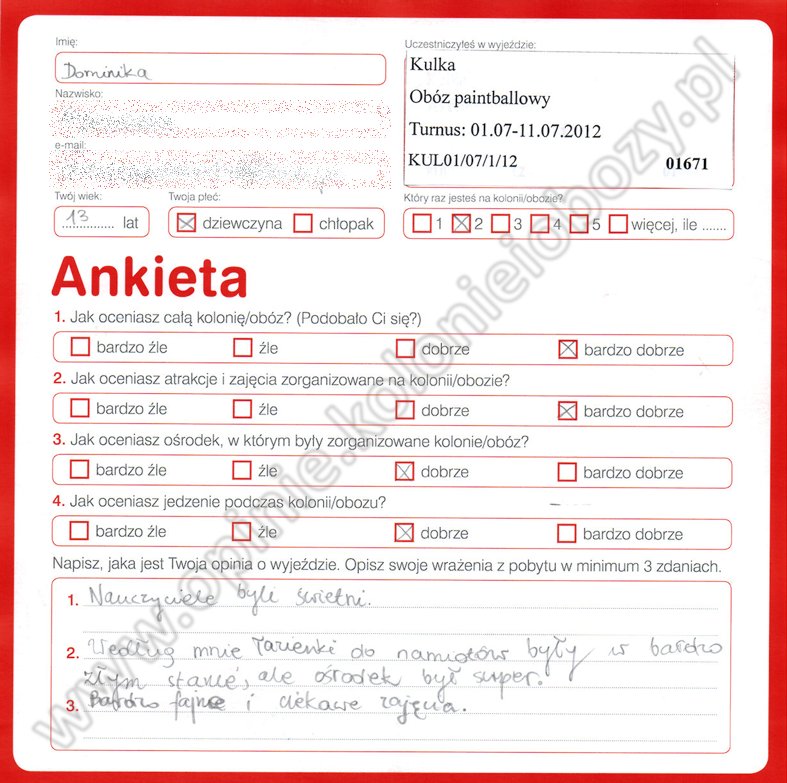 Imię:
Dominika
Nazwisko:
e-mail:
Twój wiek:
13 lat
Twoja płeć:
dziewczyna chłopak
Uczestniczyłeś w wyjeździe:
Kulka
Obóz paintballowy
Turnus: 01.07-11.07.2012
KUL01/07/1/12 01671
Który raz jesteś na kolonii/obozie?
1 2 3 4 5 więcej, ile .......
Ankieta
1. Jak oceniasz całą kolonię/obóz? (Podobało Ci się?)
bardzo źle źle dobrze bardzo dobrze
2. Jak oceniasz atrakcje i zajęcia zorganizowane na kolonii/obozie?
bardzo źle źle dobrze bardzo dobrze
3. Jak oceniasz ośrodek, w którym były zorganizowane kolonie/obóz?
bardzo źle źle dobrze bardzo dobrze
4. Jak oceniasz jedzenie podczas kolonii/obozu?
bardzo źle źle dobrze bardzo dobrze
Napisz, jaka jest Twoja opinia o wyjeździe. Opisz swoje wrażenia z pobytu w minimum 3 zdaniach.
1. Nauczyciele byli świetni.
2. Według mnie łazienki do namiotów były w bardzo
złym stanie, ale ośrodek był super.
3. Bardzo fajne i ciekawe zajęcia.
www.opinie.kolonieiobozy.pl